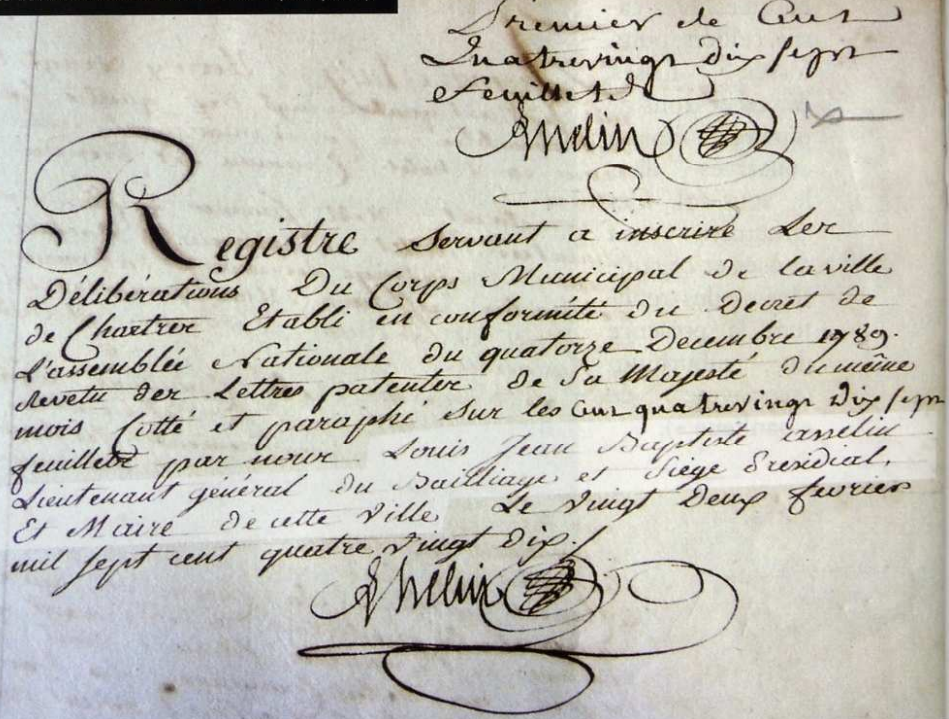 Premier de Cent
Quatrevingt dix sept
feuillets
Asselin
Registre Servant a inscrire Les
Délibérations Du Corps Municipal de la ville
de Chartres Etabli en conformité du Decret de
L'assemblée Nationale du quatorze Decembre 1789.
Revetu des Lettres patentes de Sa Majesté du même
mois Cotté et paraphé sur les Cent quatrevingt Dix sept
feuillets par nous Louis Jean Baptiste asselin
Lieutenant général du Bailliage et Siège Presidial,
Et Maire de cette Ville Le vingt Deux fevrier
mil sept cent quatre vingt dix./
Asselin